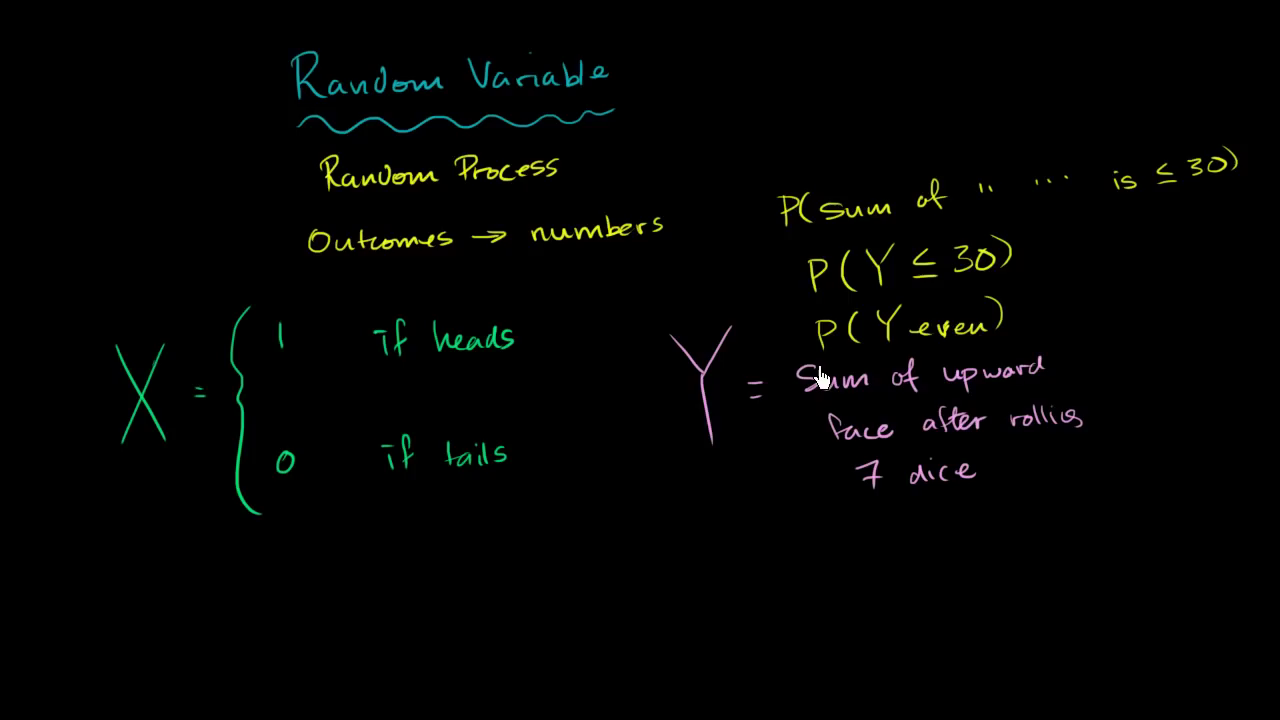 Random Variable
Random Process
Outcomes → numbers
X = { 1 if heads
0 if tails
P(sum of " ... is ≤ 30)
P(Y ≤ 30)
P(Y even)
Y = Sum of upward
face after rolling
7 dice